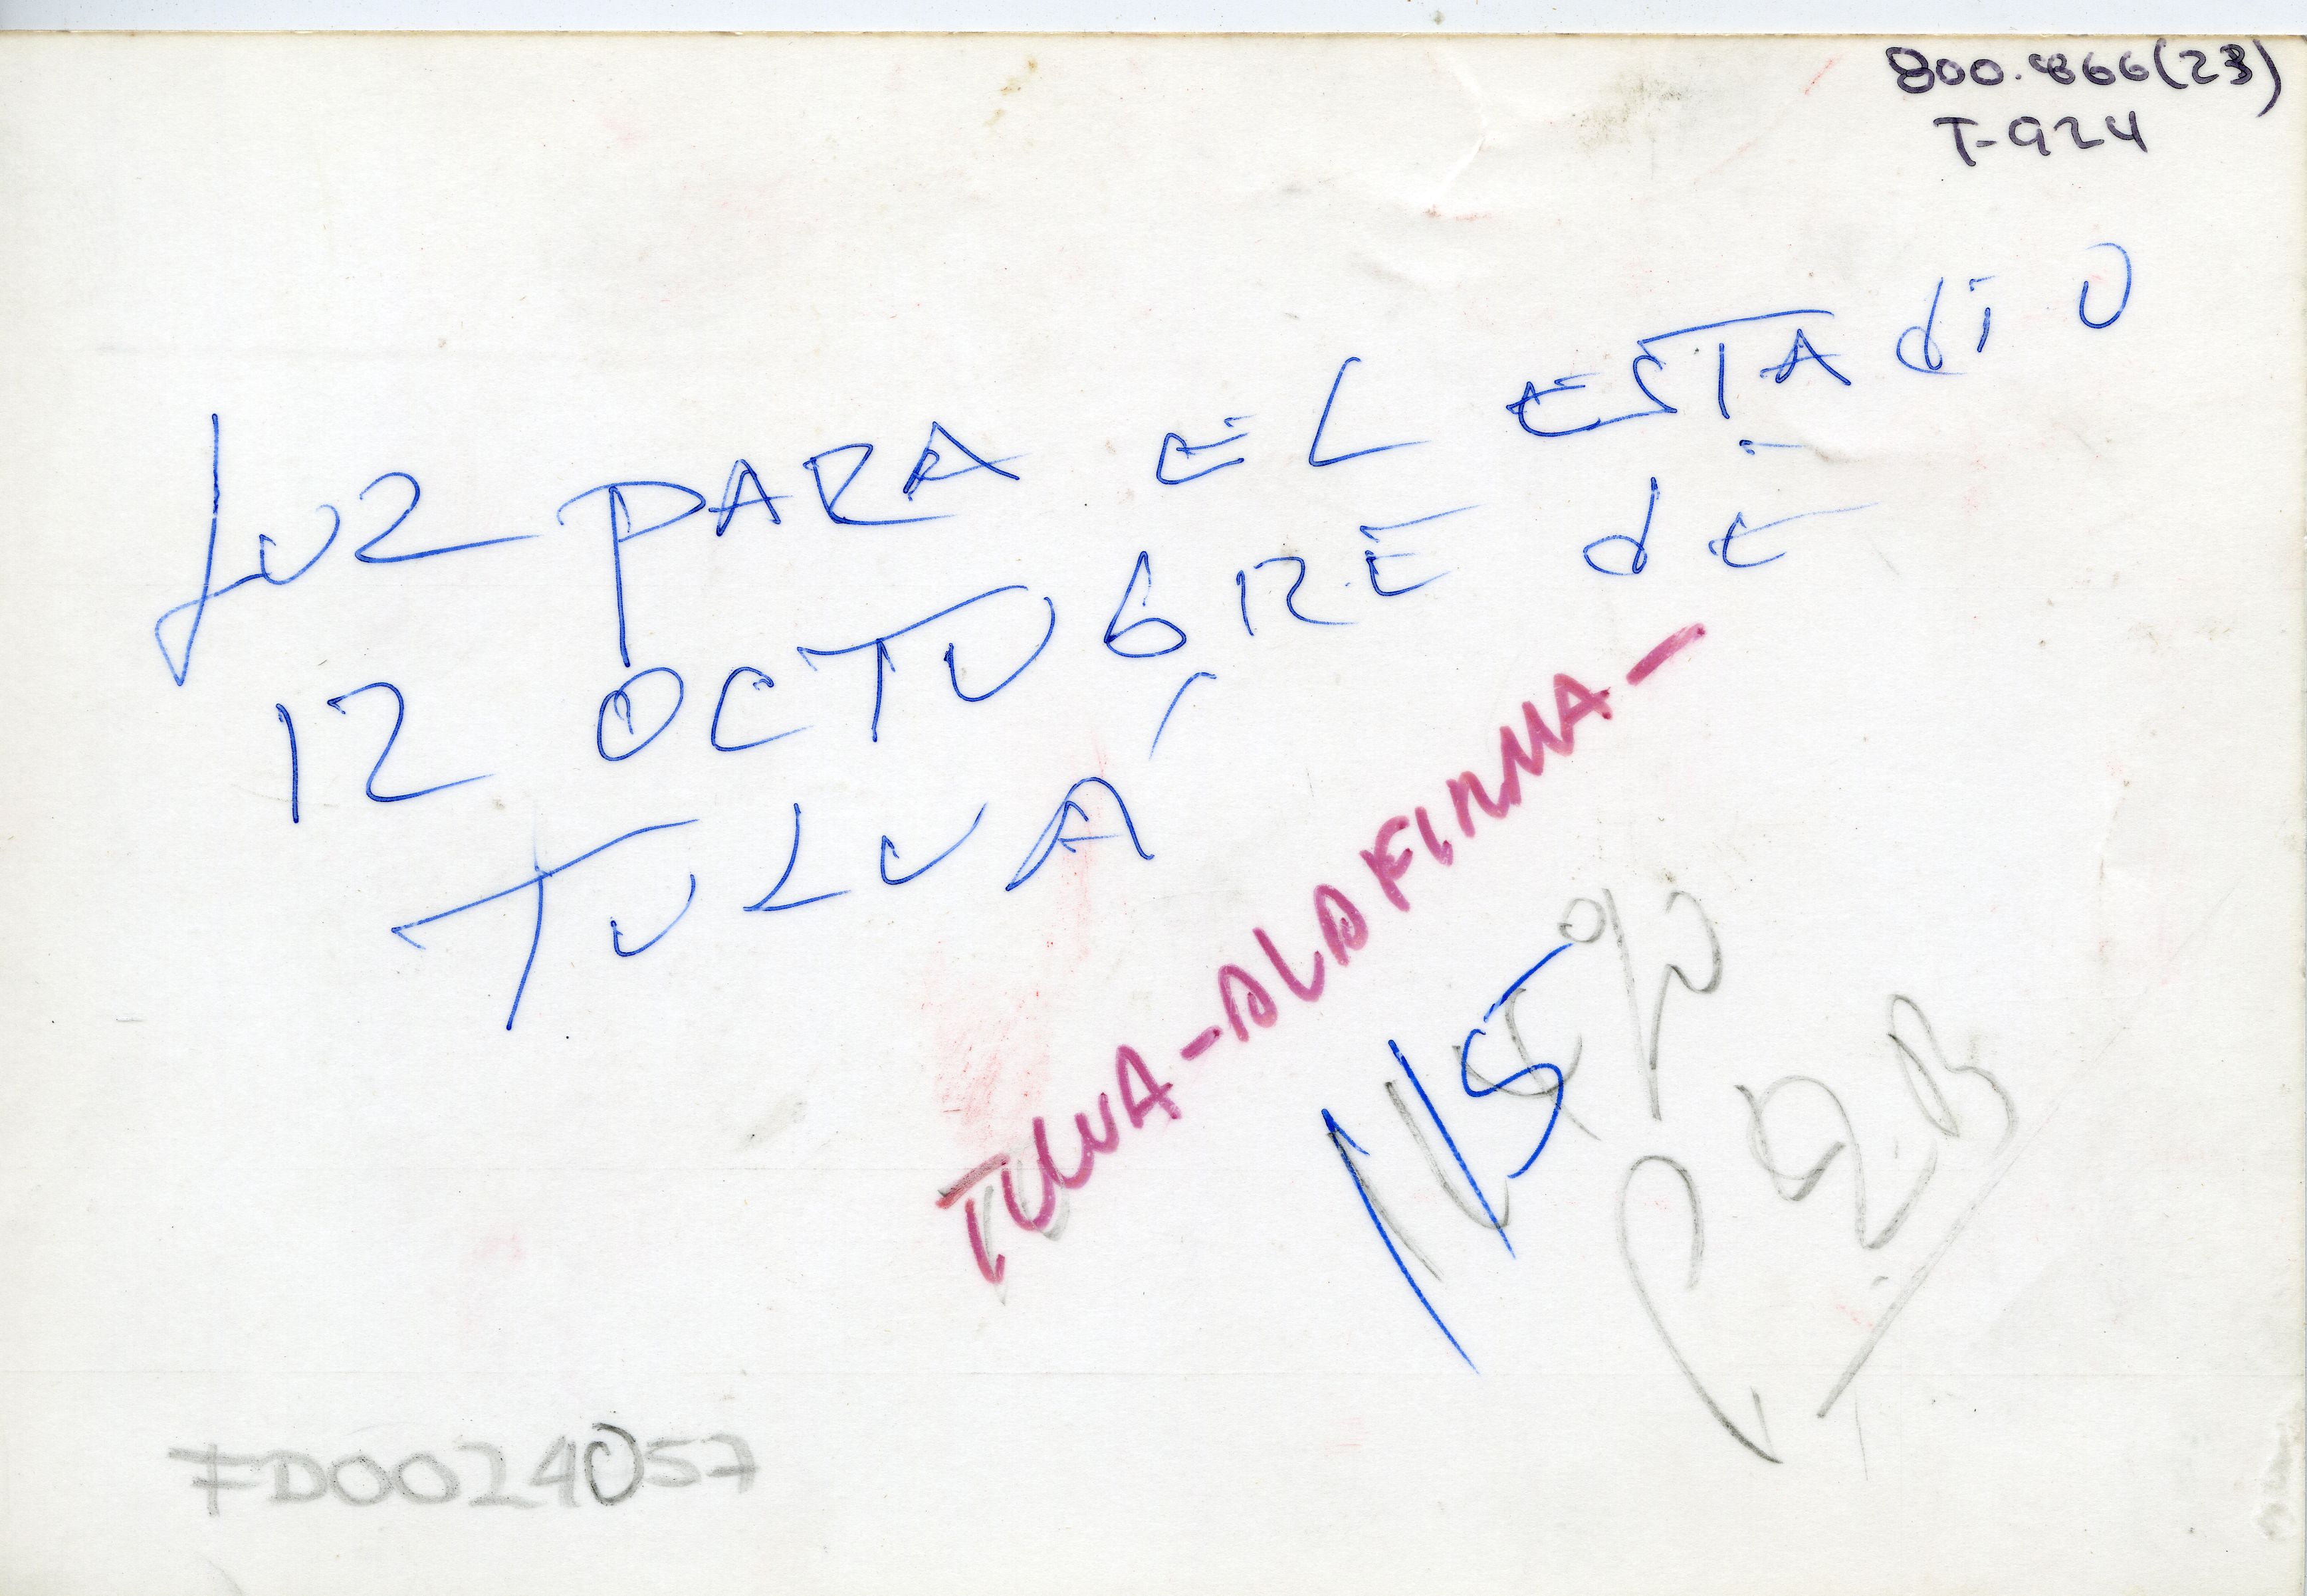 800.866(23)
T-924
LUZ PARA EL ESTAdiO
12 OCTUBRE dE
TULUÁ
TULUA - ALA FIRMA -
FD0024057